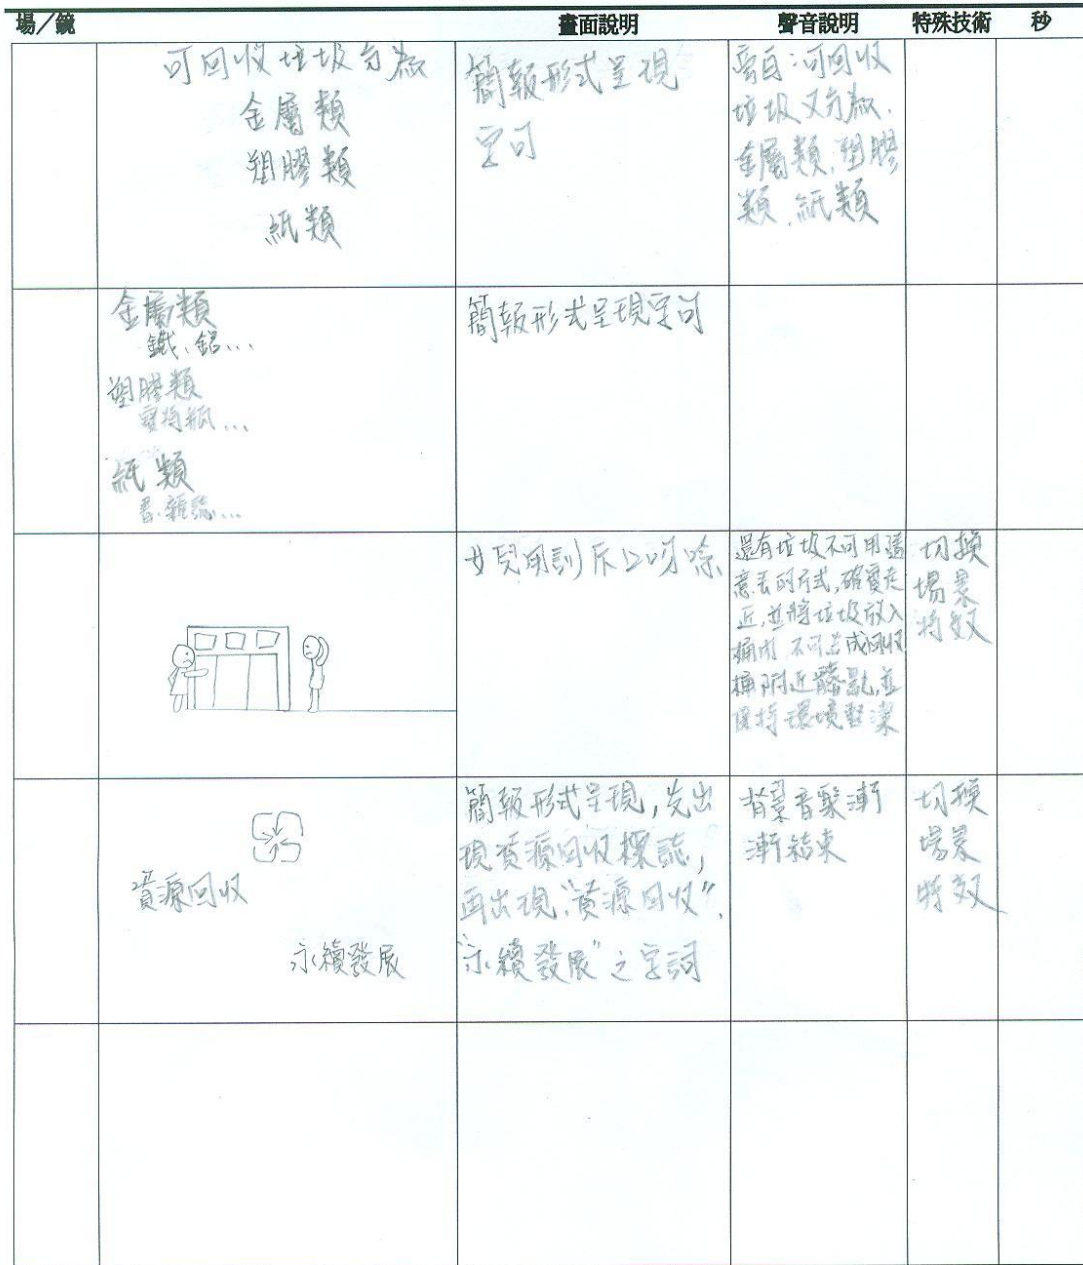 場／鏡
畫面說明
聲音說明
特殊技術
秒
可回收垃圾分為
金屬類
塑膠類
紙類
簡報形式呈現
字句
旁白:可回收
垃圾又分為、
金屬類、塑膠
類、紙類
金屬類
鐵、鋁...
塑膠類
寶特瓶...
紙類
書、雜誌...
簡報形式呈現字句
女兒用訓斥口吻
還有垃圾不可用隨
意丟的方式,確實走
近,並將垃圾放入
桶內 不可造成回收
桶附近髒亂,並
保持環境整潔
切換
場景
特效
資源回收
永續發展
簡報形式呈現,先出
現資源回收標誌,
再出現“資源回收”、
“永續發展”之字詞
背景音樂漸
漸結束
切換
場景
特效